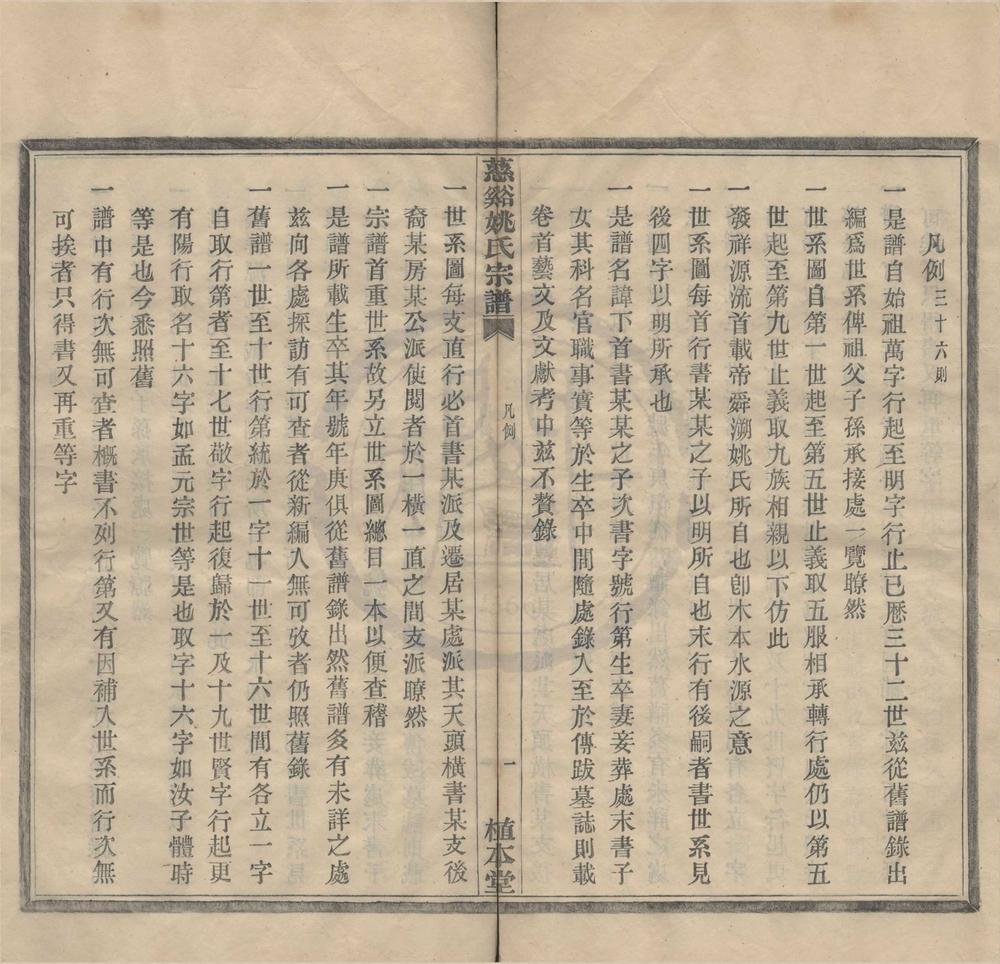 凡例三十六則
一是譜自始祖萬字行起至明字行止已歷三十二世茲從舊譜錄出
編爲世系俾祖父子孫承接處一覽瞭然
一世系圖自第一世起至第五世止義取五服相承轉行處仍以第五
世起至第九世止義取九族相親以下仿此
一發祥源流首載帝舜溯姚氏所自也卽木本水源之意
一世系圖每首行書某某之子以明所自也末行有後嗣者書世系見
後四字以明所承也
一是譜名諱下首書某某之子次書字號行第生卒妻妾葬處末書子
女其科名官職事實等於生卒中間隨處錄入至於傳跋墓誌則載
卷首藝文及文獻考中茲不贅錄
慈谿姚氏宗譜
凡例
一
植本堂
一世系圖每支直行必首書某派及遷居某處派其天頭橫書某支後
裔某房某公派使閱者於一橫一直之間支派瞭然
一宗譜首重世系故另立世系圖總目一本以便查稽
一是譜所載生卒其年號年庚俱從舊譜錄出然舊譜多有未詳之處
茲向各處探訪有可查者從新編入無可攷者仍照舊錄
一舊譜一世至十世行第統於一字十一世至十六世間有各立一字
自取行第者至十七世敬字行起復歸於一及十九世賢字行起更
有陽行取名十六字如孟元宗世等是也取字十六字如汝子體時
等是也今悉照舊
一譜中有行次無可查者概書不列行第又有因補入世系而行次無
可挨者只得書又再重等字